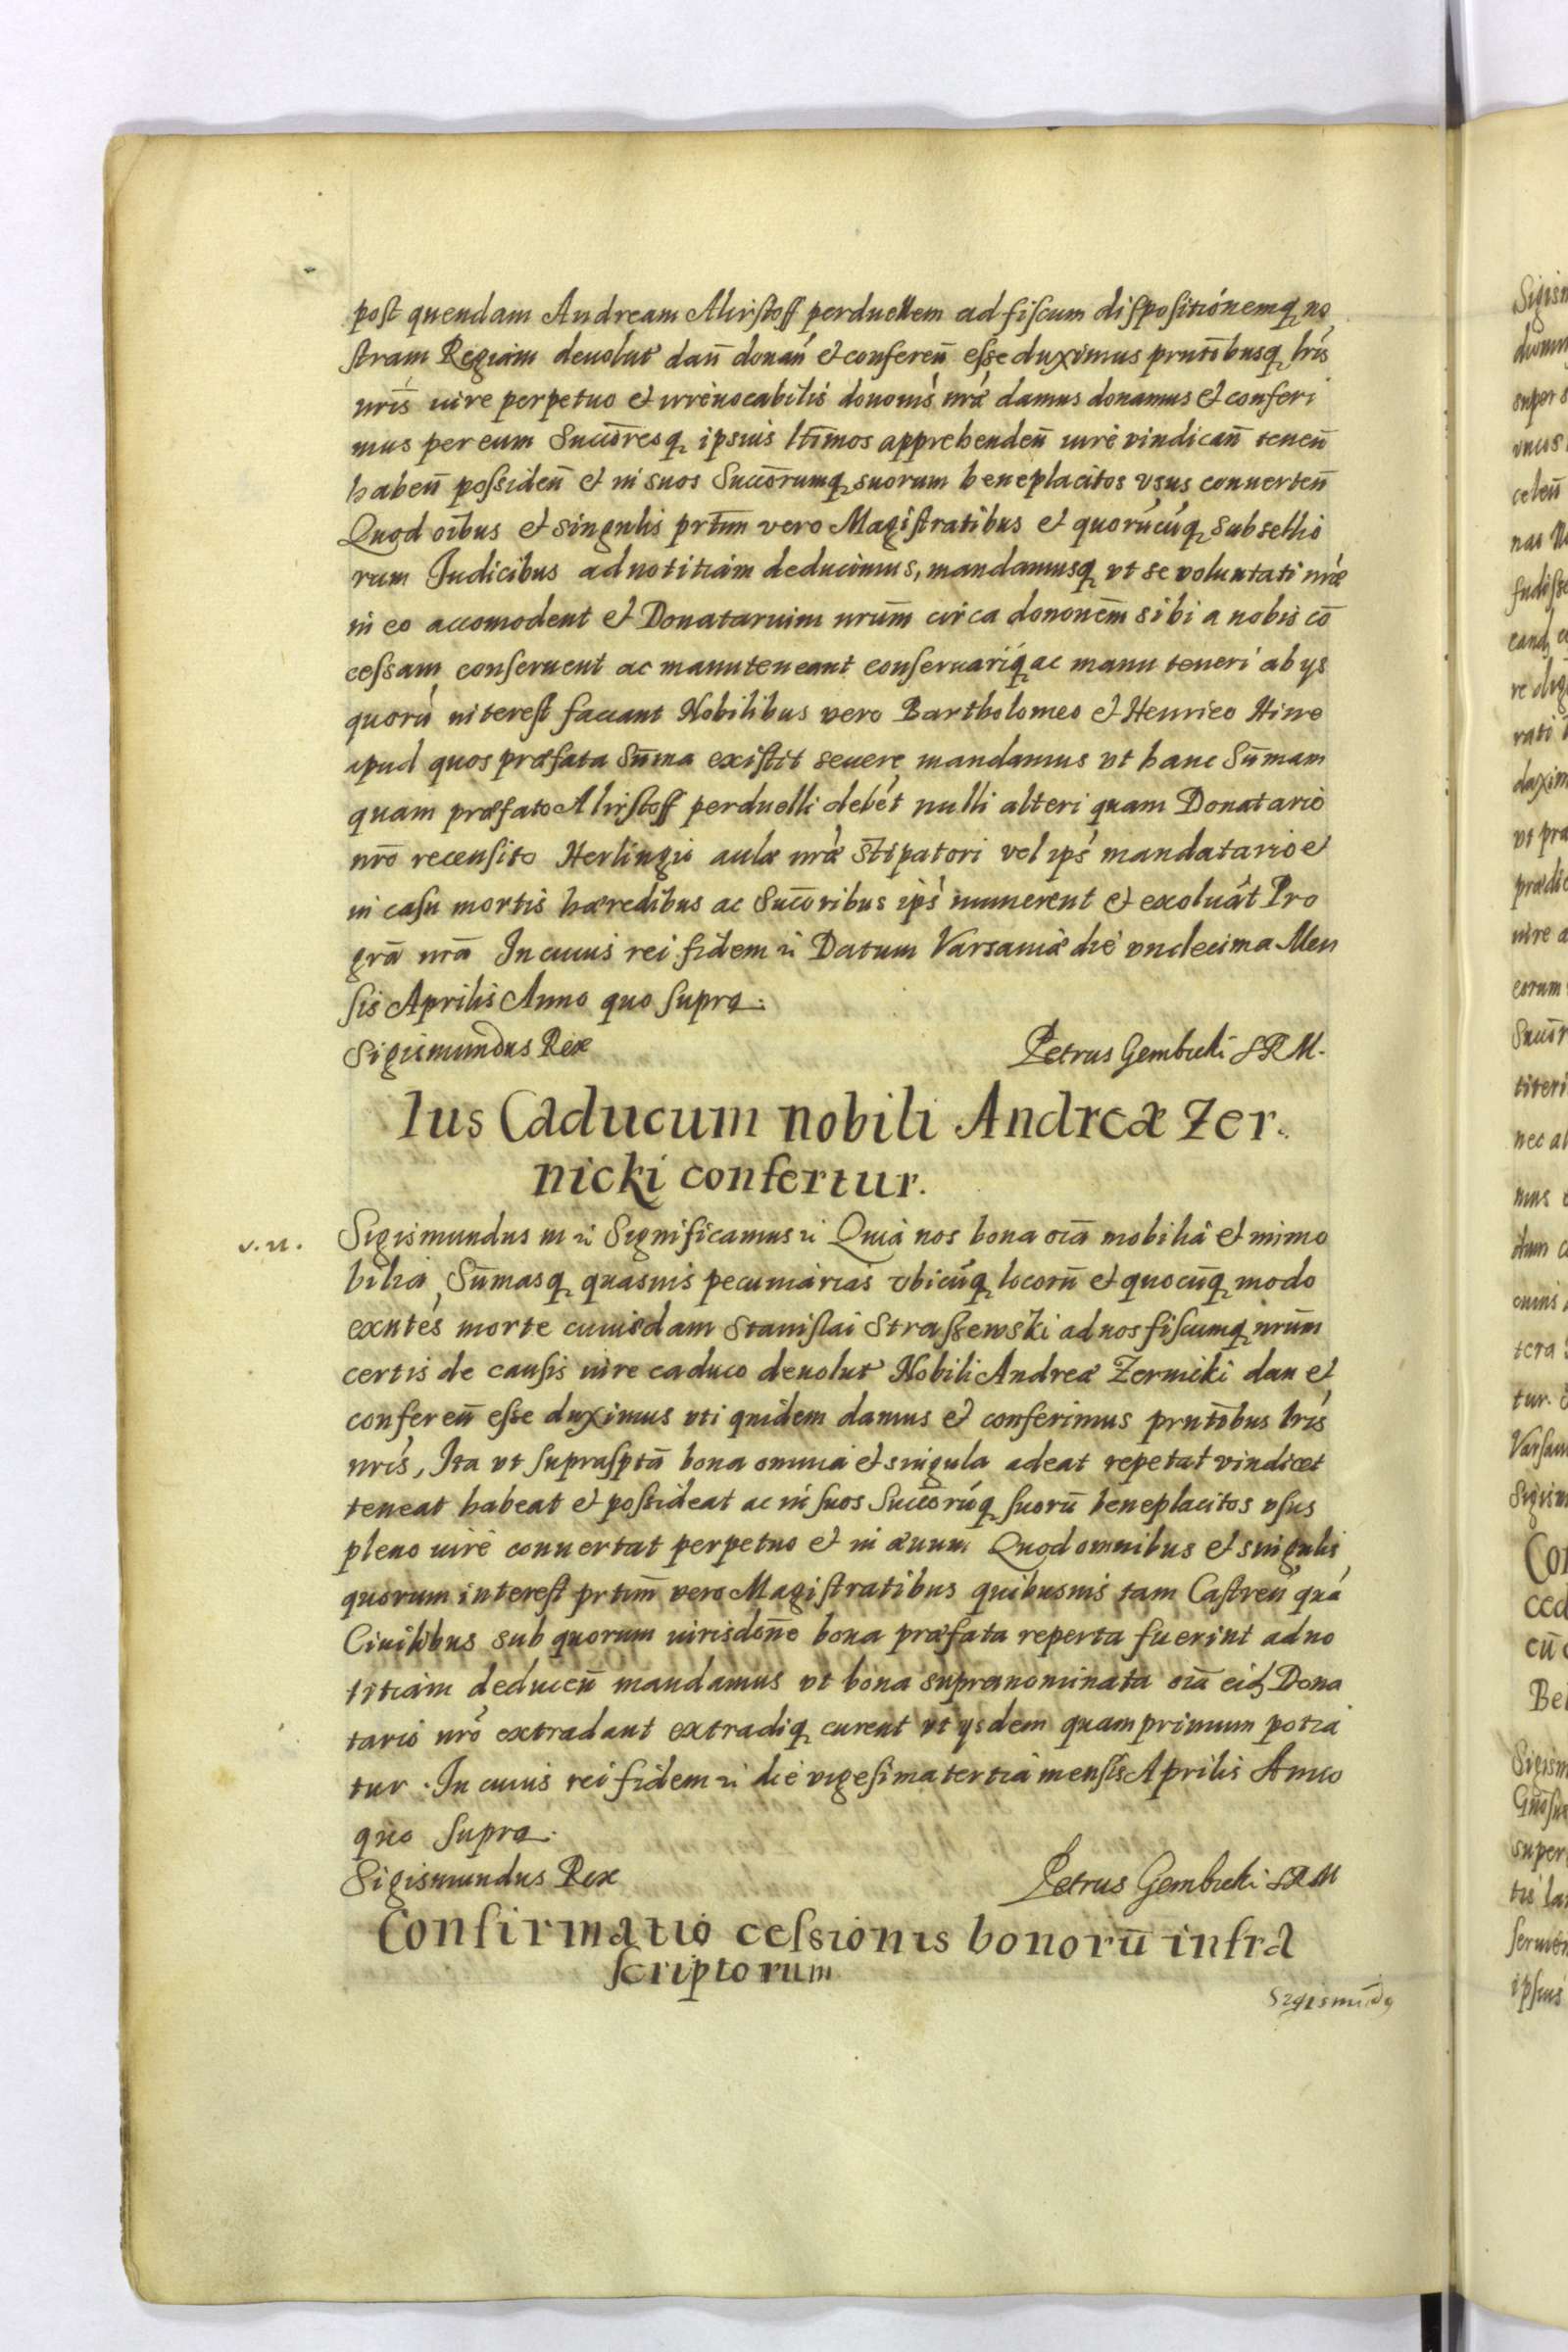 post quendam Andream Alirstoff perduellem ad fiscum dispositionemq no
stram Regiam deuolut dan̄ donan̄ et conferen̄ esse duximus prntībusq lris
nris iure perpetuo et irreuocabilis donoīs nrā damus donamus et conferi
mus per eum Succōresq ipsius ltīmos apprehenden̄ iure vindican̄ tenen̄
haben̄ possiden̄ et in suos Succōrumq suorum beneplacitos vsus conuerten̄
Quod oībus et singulis prtīm vero Magistratibus et quorūcūq subsellio
rum Iudicibus ad notitiam deducimus, mandamusq vt se voluntati nræ
in eo accomodent et Donatarium nrūm circa dononēm sibi a nobis cō
cessam conseruent ac manuteneant conseruariq ac manu teneri ab ys
quorū interest faciant Nobilibus vero Bartholomeo et Henrico Hine
apud quos præfata Sum̄a existit seuere mandamus vt hanc Sum̄am
quam præfato Alirstoff perduelli debēt nulli alteri quam Donatario
nrō recensito Herlingio aulæ nræ Stipatori vel ips̄ mandatario et
in casu mortis hæredibus ac Succōribus ips̄ numerent et exoluāt Pro
grā nrā In cuius rei fidem rc Datum Varsauiæ die vndecima Men
sis Aprilis Anno quo supra.
Sigismundus Rex
Petrus Gembicki SRM.
Ius Caducum nobili Andreæ Zer.
nicki confertur.
v. n.
Sigismundus III rc Significamus rc Quia nos bona oīa mobilia et immo
bilia, Sum̄asq quasuis pecuniarias vbicūq locorū et quocūq modo
exntēs morte cuiusdam Stanislai Straszewski ad nos fiscumq nrūm
certis de causis iure caduco deuolut Nobili Andreæ Zernicki dan et
conferen̄ esse duximus vti quidem damus et conferimus prntībus lris
nris, Ita vt suprasptā bona omnia et singula adeat repetat vindicet
teneat habeat et possideat ac in suos Succōrūq suorū beneplacitos vsus
pleno iure conuertat perpetuo et in æuum Quod omnibus et singulis
quorum interest prtīm vero Magistratibus quibusuis tam Castren̄ quā
Ciuilibus sub quorum iurisdone bona præfata reperta fuerint ad no
titiam deducen̄ mandamus vt bona supranominata oīa eid Dona
tario nrō extradant extradiq curent vt ysdem quamprimum potia
tur. In cuius rei fidem rc die vigesima tertia mensis Aprilis Anno
quo supra.
Sigismundus Rex
Petrus Gembicki SRM
Confirmatio cessionis bonorū infra
scriptorum
Sigismūdq